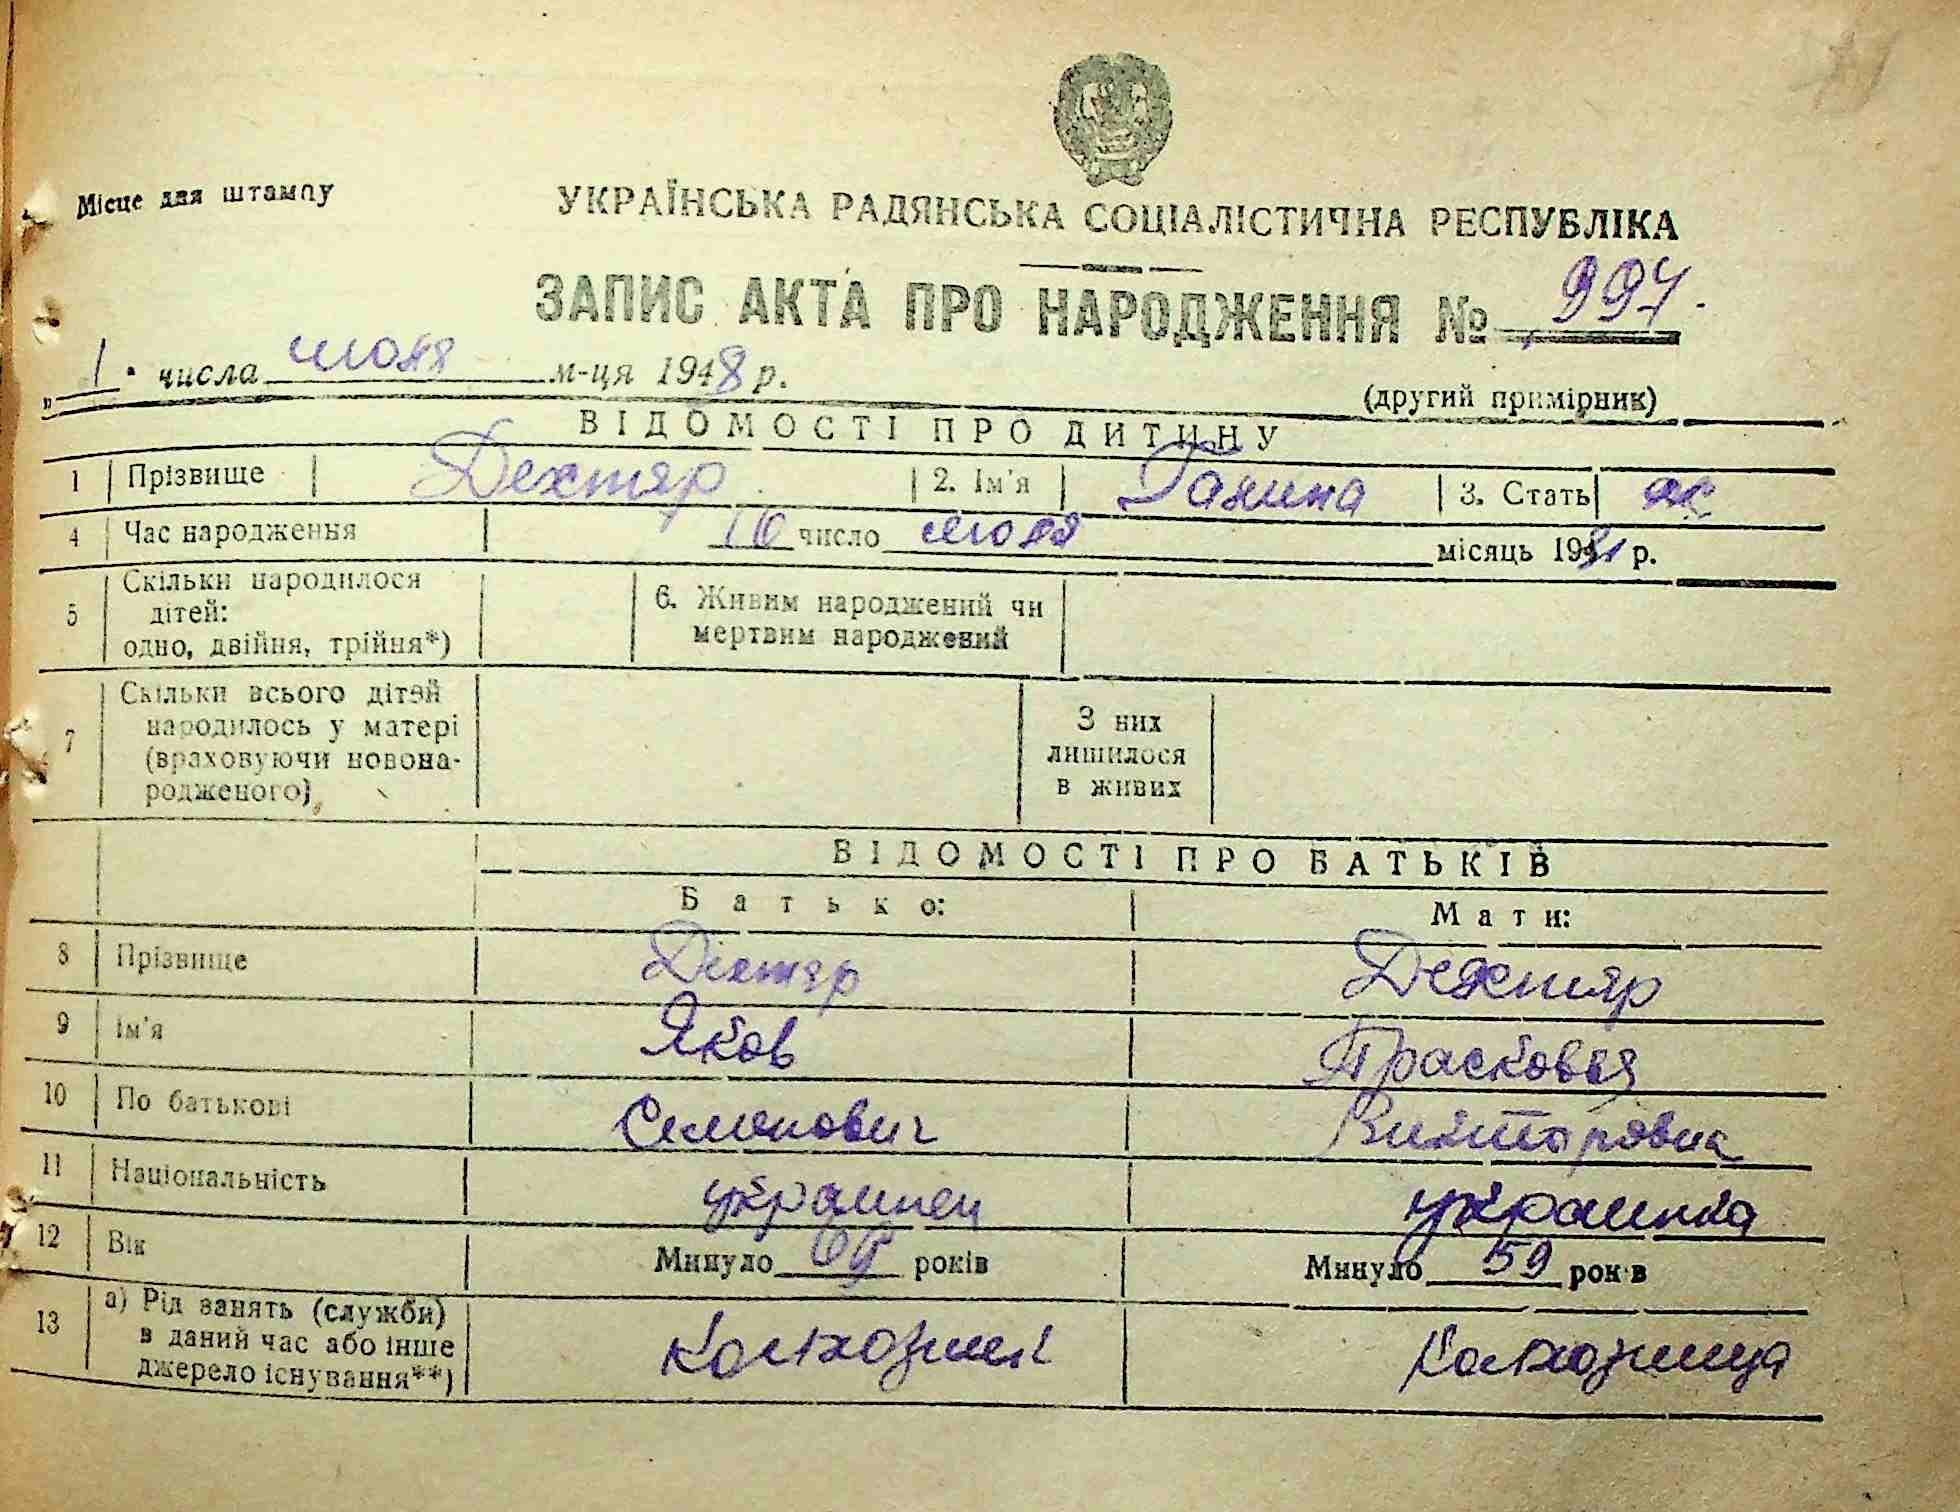 Місце для штампу
УКРАЇНСЬКА РАДЯНСЬКА СОЦІАЛІСТИЧНА РЕСПУБЛІКА
ЗАПИС АКТА ПРО НАРОДЖЕННЯ № 997
„1" числа июня м-ця 1948 р.
(другий примірник)
ВІДОМОСТІ ПРО ДИТИНУ
1 Прізвище Дехтяр 2. Ім'я Галина 3. Стать ж
4 Час народження 10 число июня місяць 1931 р.
5 Скільки народилося дітей: одно, двійня, трійня*) 6. Живим народжений чи мертвим народжений
7 Скільки всього дітей народилось у матері (враховуючи новонародженого) З них лишилося в живих
ВІДОМОСТІ ПРО БАТЬКІВ
Батько: Мати:
8 Прізвище Дехтяр Дехтяр
9 Ім'я Яков Прасковья
10 По батькові Семонович Викторовна
11 Національність украинец украинка
12 Вік Минуло років Минуло 59 років
13 а) Рід занять (служби) в даний час або інше джерело існування**) колхозник колхозница